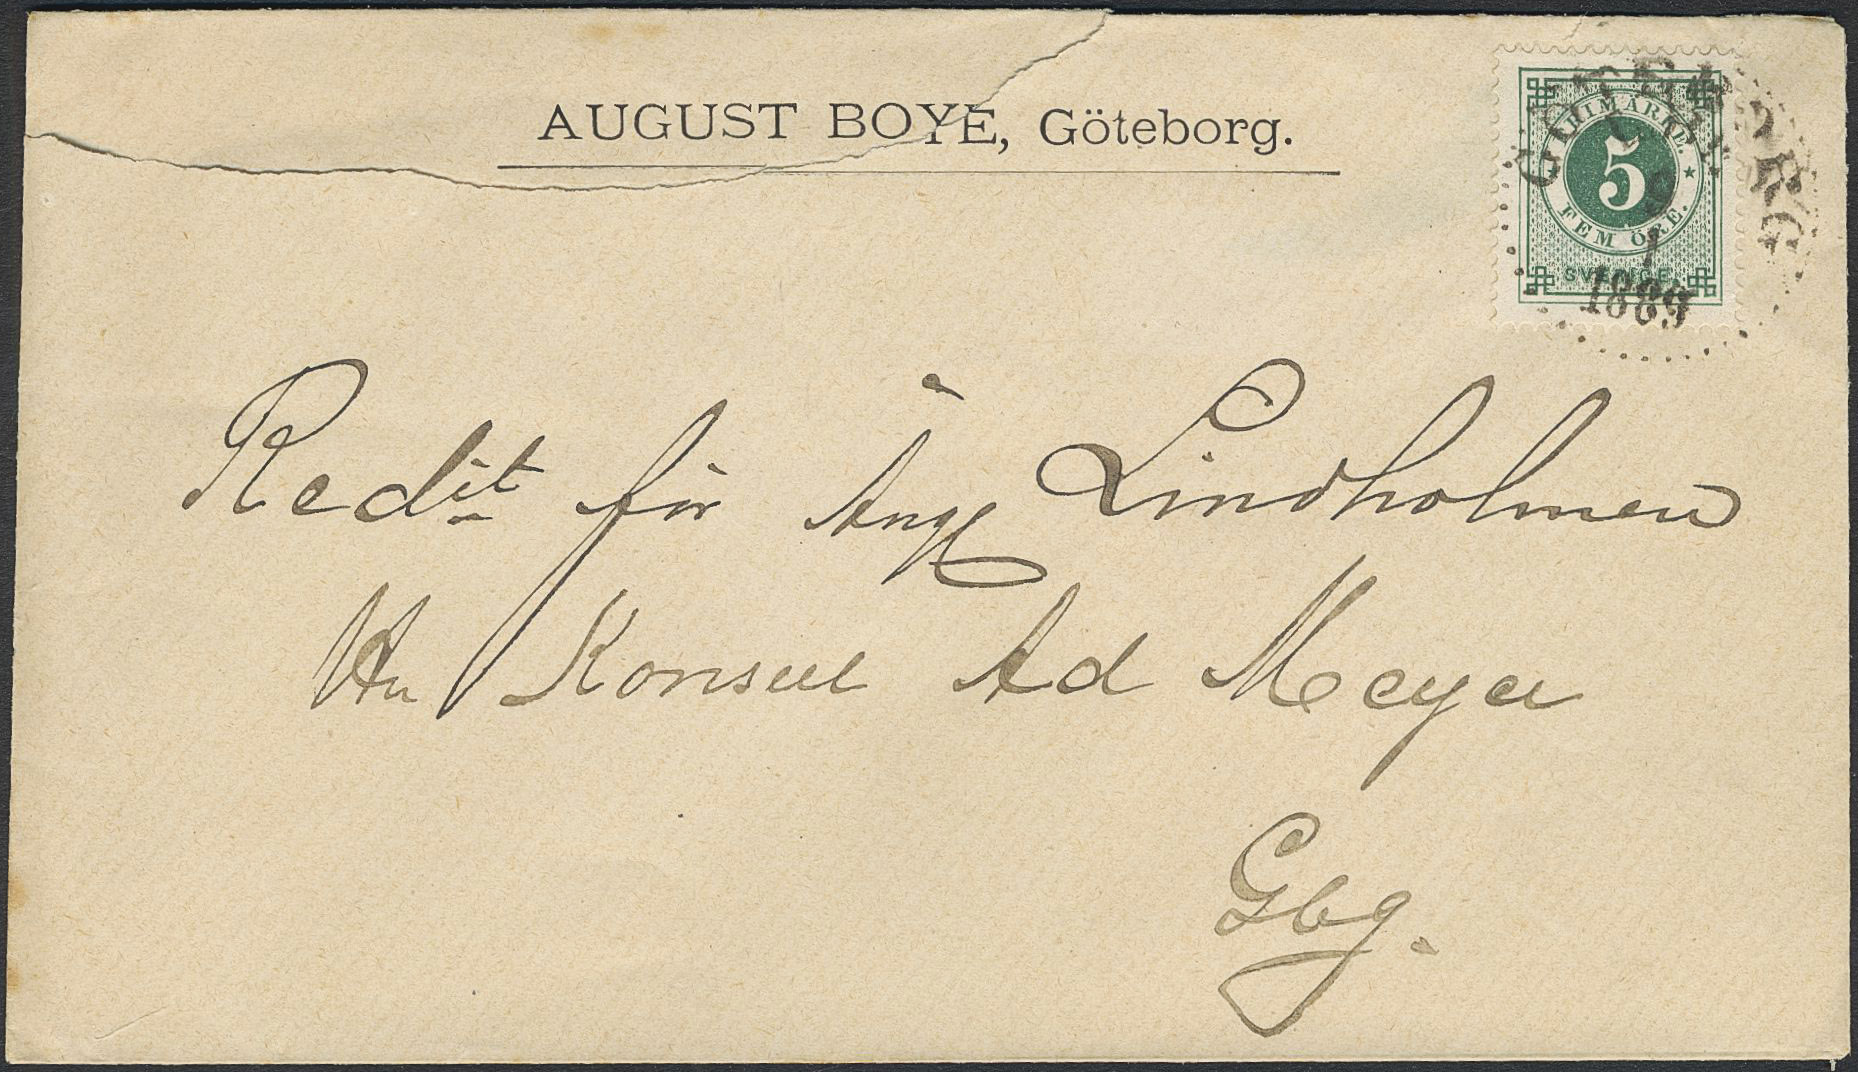 AUGUST BOYE, Göteborg.
GÖTEBORG
9
1
1889
FRIMÄRKE.
5
FEM ÖRE.
SVERIGE
Red it för Ång Lindholmen
Hr Konsul Ad Meyer
Gbg.